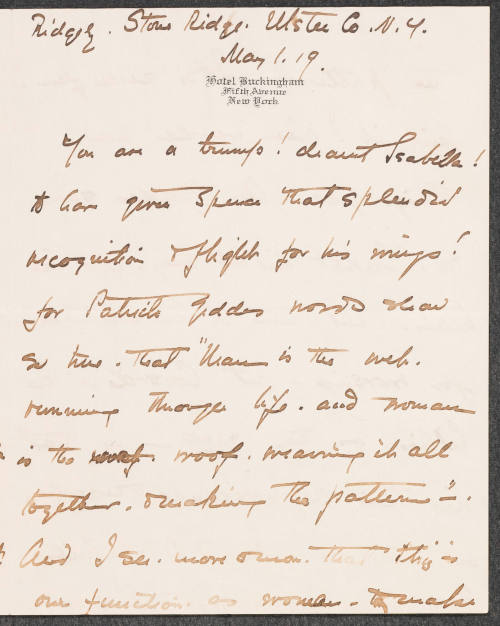 Ridgely. Stone Ridge. Ulster Co. N.Y.
May 1. 19.
Hotel Buckingham
Fifth Avenue
New York
You are a trump! dearest Isabella!
to have given Spence that splendid
recognition & flight for his wings!
for Patrick Geddes words show
so true. that "Man is the web.
running through life. and woman
is the woof. weaving it all
together. & making the pattern".
And I see. more & more. that this is
our function. as woman. to make